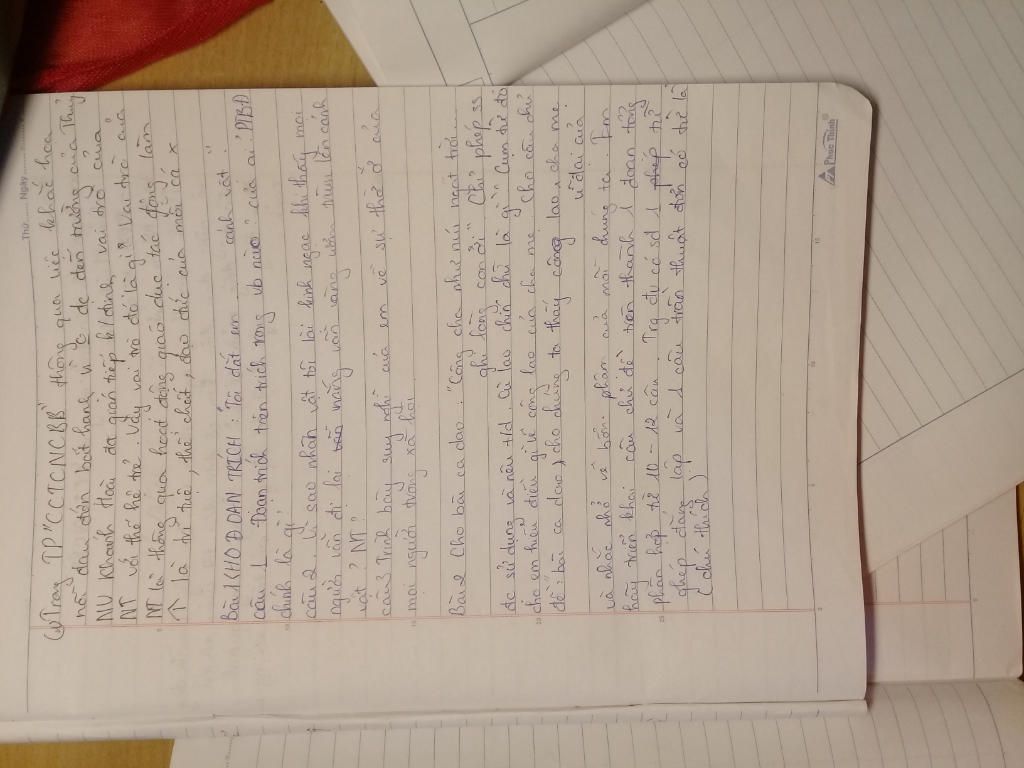 Thứ ........ Ngày ........
⑥ Trong TP "CCTCNCBB" thông qua việc khắc họa
nỗi đau đớn bất hạnh vì c đc đến trường của Thủy
NV Khánh Hoài đã gián tiếp k/định vai trò của
NT với thế hệ trẻ. Vậy vai trò đó là gì? Vai trò của
NT là thông qua hoạt động giáo dục tác động làm
↑ là trí tuệ, thể chất, đạo đức của mỗi cá x
Bài 1 (CHO ĐOẠN TRÍCH: "Tôi dắt em ... cảnh vật"
câu 1. Đoạn trích trên trích trong vb nào? của ai? PTBĐ
chính là gì?
câu 2. Vì sao nhân vật tôi lại kinh ngạc khi thấy mọi
người vẫn đi lại và nắng vẫn vàng ươm trùm lên cảnh
vật? NT?
câu 3 Trình bày suy nghĩ của em về sự thờ ơ của
mọi người trong xã hội
Bài 2 Cho bài ca dao: "Công cha như núi ngất trời ...
ghi lòng con ơi." Chỉ phép ss
đc sử dụng và nêu t/d. Cù lao chín chữ là gì? Cụm từ đó
cho em hiểu điều gì về công lao của cha mẹ. Cho câu chủ
đề: bài ca dao, cho chúng ta thấy công lao cha mẹ
vĩ đại của
và nhắc nhở về bổn phận của mỗi chúng ta. Em
hãy triển khai câu chủ đề trên thành 1 đoạn tổng
phân hợp từ 10 - 12 câu. Trg đv có sd 1 phép từ
ghép đẳng lập và 1 câu trần thuật đơn có từ là
(chú thích)
5
10
15
20
25
Phúc Thịnh